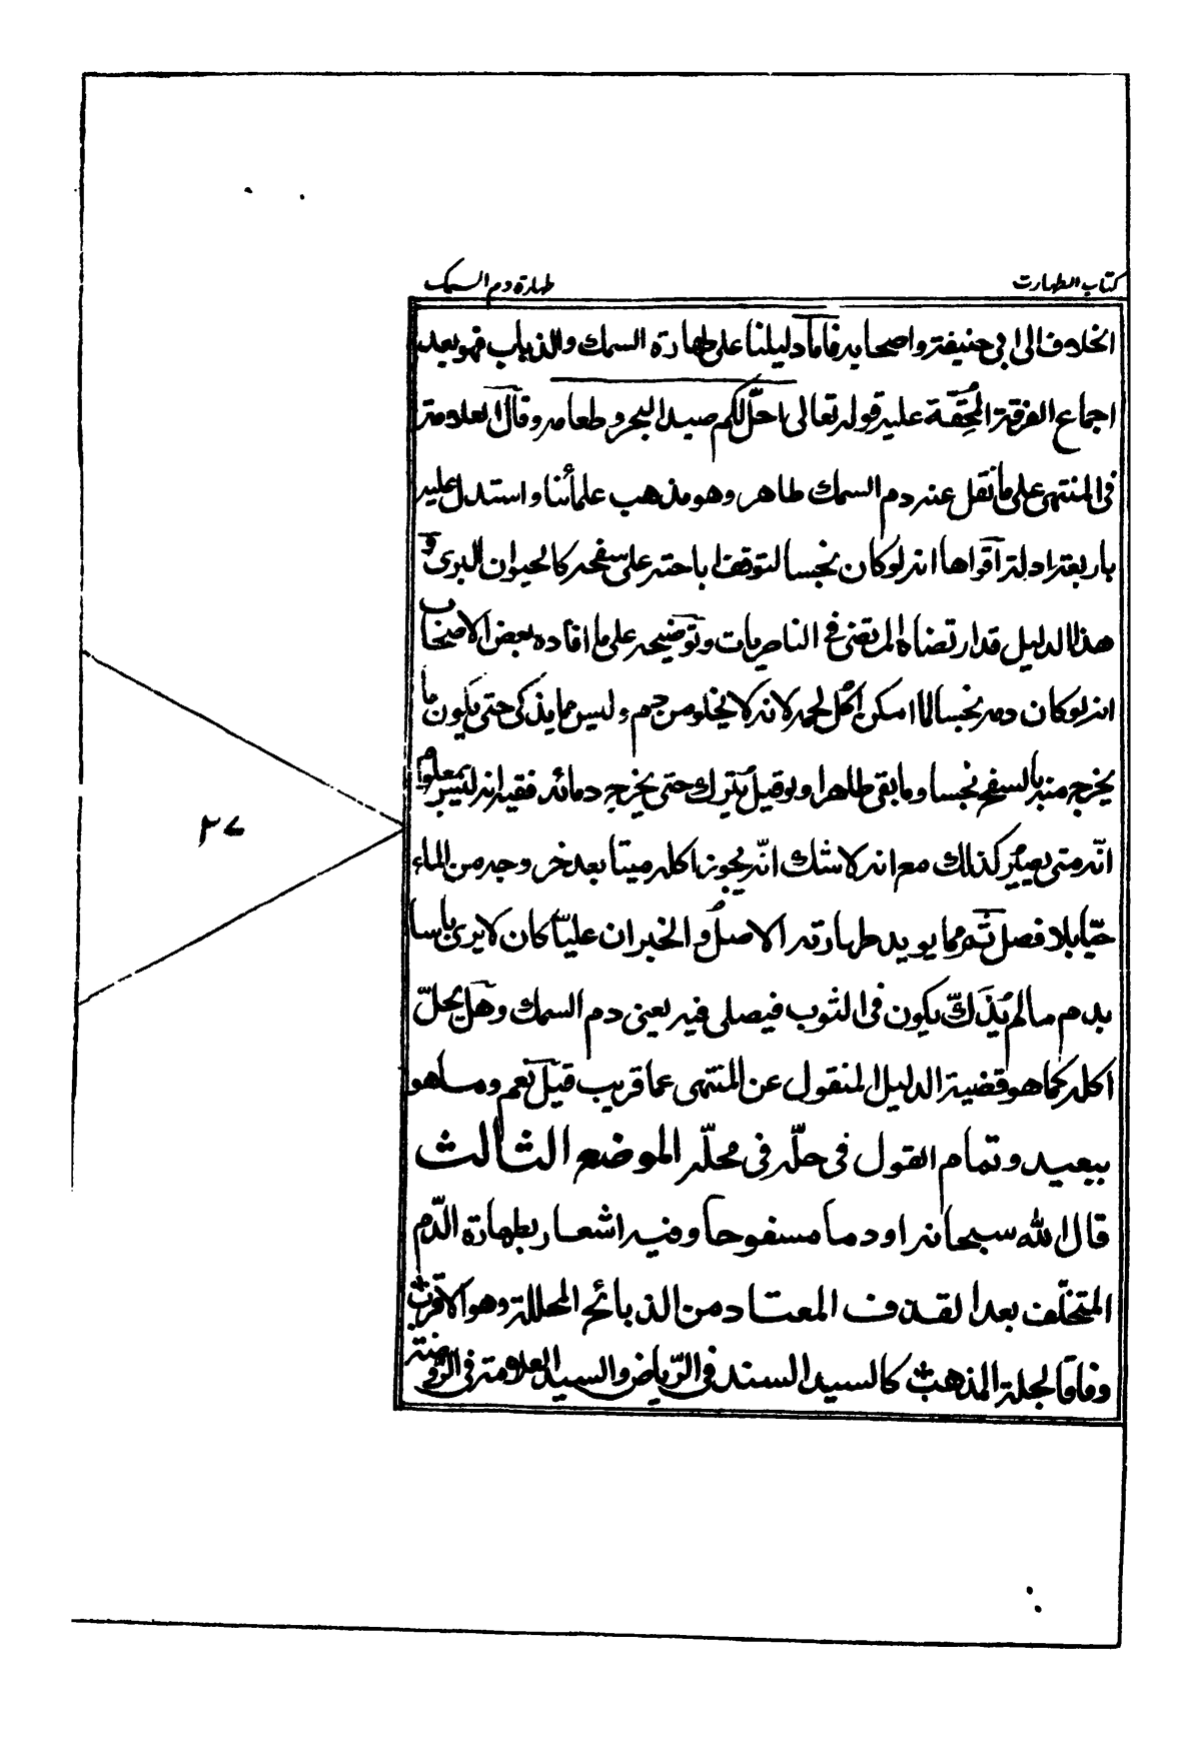 كتاب الطهارت
طهارة دم السمك
الخلاف الى ابى حنيفة واصحابه فاما دليلنا على طهارة السمك والذباب فهو بعد
اجماع الفرقة المحقة عليه قوله تعالى احل لكم صيد البحر وطعامه وقال العلامة
فى المنتهى على ما نقل عنه دم السمك طاهر وهو مذهب علمائنا واستدل عليه
باربعة ادلة اقواها انه لو كان نجسا لتوقف اباحته على سفحه كالحيوان البرى و
هذا الدليل قد ارتضاه المرتضى فى الناصريات وتوضيحه على ما افاده بعض الاصحاب
انه لو كان دمه نجسا لما امكن اكل لحمه لانه لا يخلو من دم وليس مما يذكى حتى يكون ما
يخرج منه بالسفح نجسا وما بقى طاهرا ولو قيل يترك حتى يخرج دمائه ففيه انه ليس بمعلوم
انه متى يصير كذلك مع انه لا شك انه يجوز اكله ميتا بعد خروجه من الماء
حيا بلا فصل ثم مما يويد طهارته الاصل والخبر ان عليا كان لا يرى باسا
بدم ما لم يذك يكون فى الثوب فيصلى فيه يعنى دم السمك وهل يحل
اكله كما هو قضية الدليل المنقول عن المنتهى عما قريب قيل نعم وما هو
ببعيد وتمام القول فى حله فى محله الموضع الثالث
قال الله سبحانه او دما مسفوحا وفيه اشعار بطهارة الدم
المتخلف بعد القذف المعتاد من الذبائح المحللة وهو الاقرب
وفاقا لجلة المذهب كالسيد السند فى الرياض والسيد العلامة فى الروضة
٢٧